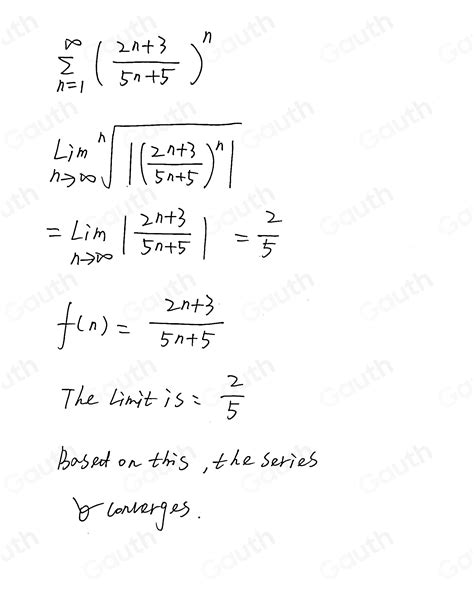 ∞
∑ ( (2n+3)/(5n+5) )^n
n=1
Lim n→∞ ⁿ√|( (2n+3)/(5n+5) )^n|
= Lim n→∞ | (2n+3)/(5n+5) | = 2/5
f(n) = (2n+3)/(5n+5)
The limit is = 2/5
Based on this, the series
converges.